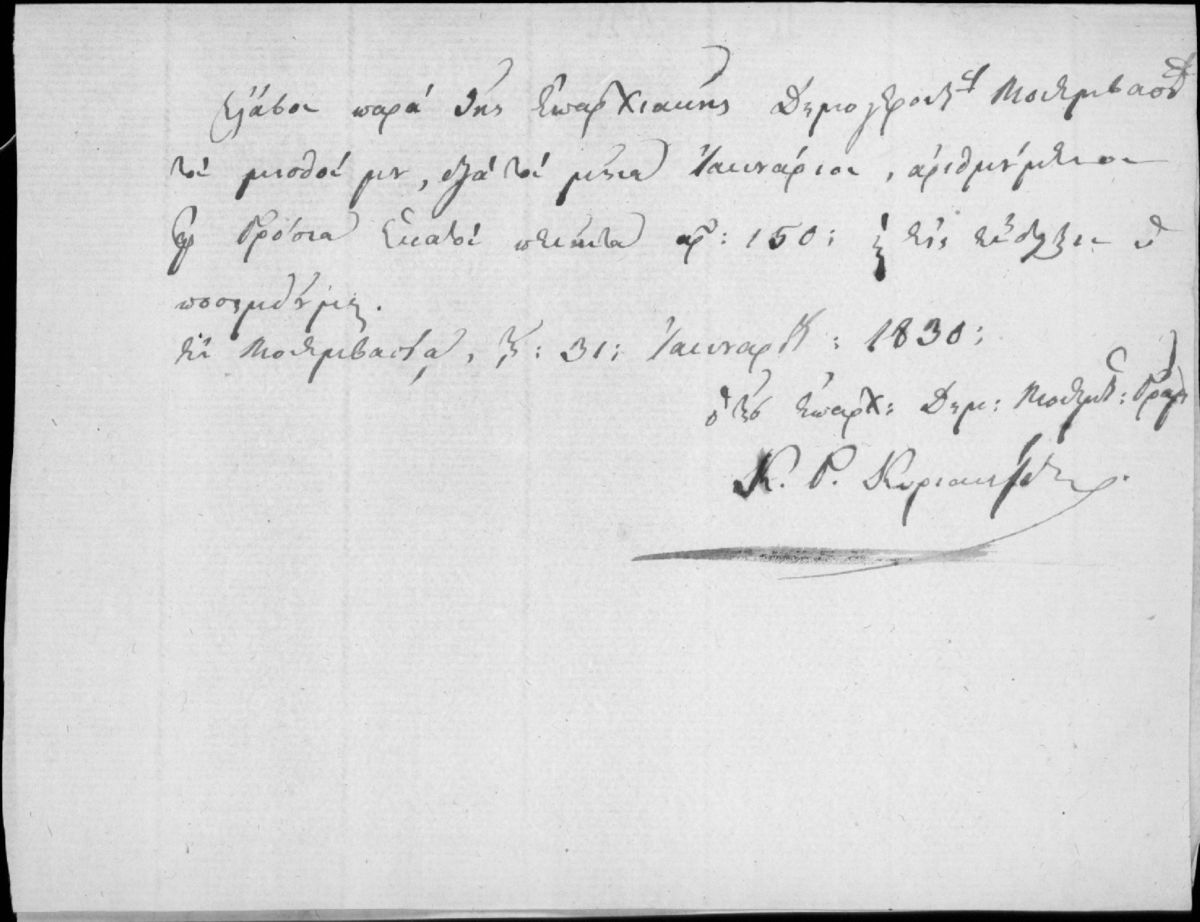 Ἔλαβον παρὰ τῆς Ἐπαρχιακῆς Δημογεροντ. Μονεμβασ.
τὸν μισθόν μου, διὰ τὸν μῆνα Ἰαννουάριον, ἀριθμούμενον
Γρόσια Ἑκατὸν πενῆντα ἀρ: 150: καὶ εἰς ἔνδειξιν ὑ
ποσημειοῦμαι.
ἐν Μονεμβασίᾳ, τῇ: 31: Ἰανναρίου: 1830:
ὁ τῆς Ἐπαρχ: Δημ: Μονεμβ: Γραμ
Κ. Ρ. Κυριακίδης.